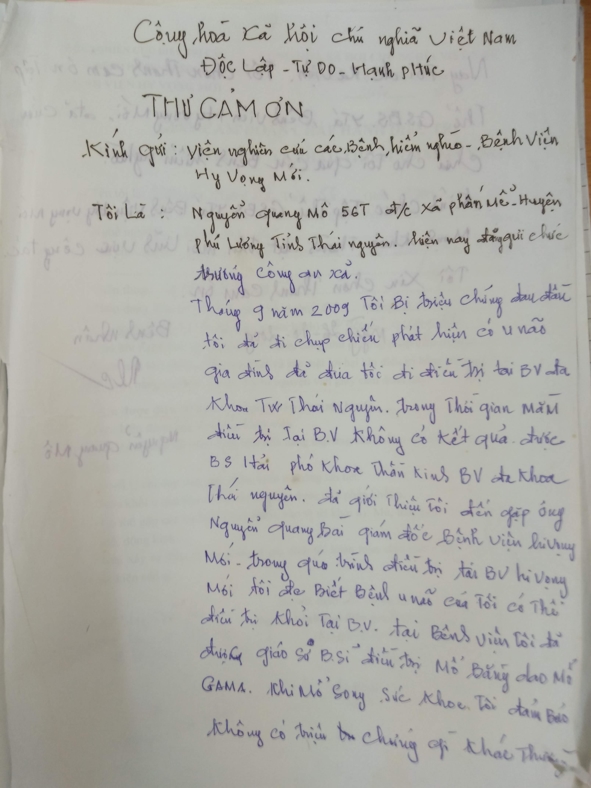 Cộng hoá xã hội chủ nghĩa Việt Nam
Độc Lập - Tự Do - Hạnh phúc
THƯ CẢM ƠN
Kính gửi : Viện nghiên cứu các Bệnh hiểm nghèo - Bệnh Viện
Hy Vọng Mới.
Tôi Là : Nguyễn quang Mô 56T đ/c Xã phấn Mễ - Huyện
phú Lương Tỉnh Thái nguyên. hiện nay đang giữ chức
trưởng công an xã.
Tháng 9 năm 2009 Tôi Bị triệu chứng đau đầu
tôi đã đi chụp chiếu phát hiện có u não
gia đình đã đưa tôi đi điều trị tại BV đa
Khoa TW Thái Nguyên. trong Thời gian nằm
điều trị Tại B.V không có kết quả được
BS Hải phó khoa Thần Kinh BV đa Khoa
Thái nguyên. đã giới Thiệu Tôi đến gặp ông
Nguyễn quang Bài giám đốc Bệnh viện hi vọng
Mới - trong quá trình điều trị tại BV hi vọng
Mới tôi đã Biết Bệnh u não của Tôi có Thể
điều trị khỏi Tại B.V. tại Bệnh viện Tôi đã
được giáo sư B.Sĩ điều trị Mổ Bằng dao Mổ
GAMA. Khi Mổ Song Sức Khoẻ Tôi đảm Bảo
Không có triệu chứng gì Khác